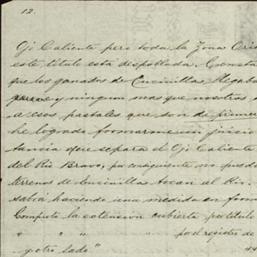 12.
Ojo Caliente pero toda la Zona Ori
este título está despoblada. Consta
que los ganados de Encinillas llegab
y ningun mas que nuestros
a esos pastales que son de primer
he logrado formarme un juicio
tancia que separa el Ojo Caliente
del Rio Bravo, por consiguiente no puedo
terrenos de Encinillas tocan al Rio.
sabia haciendo una medida en for
Computo la estension cubierta por titulo
" " " por el registro de
"otro lado"